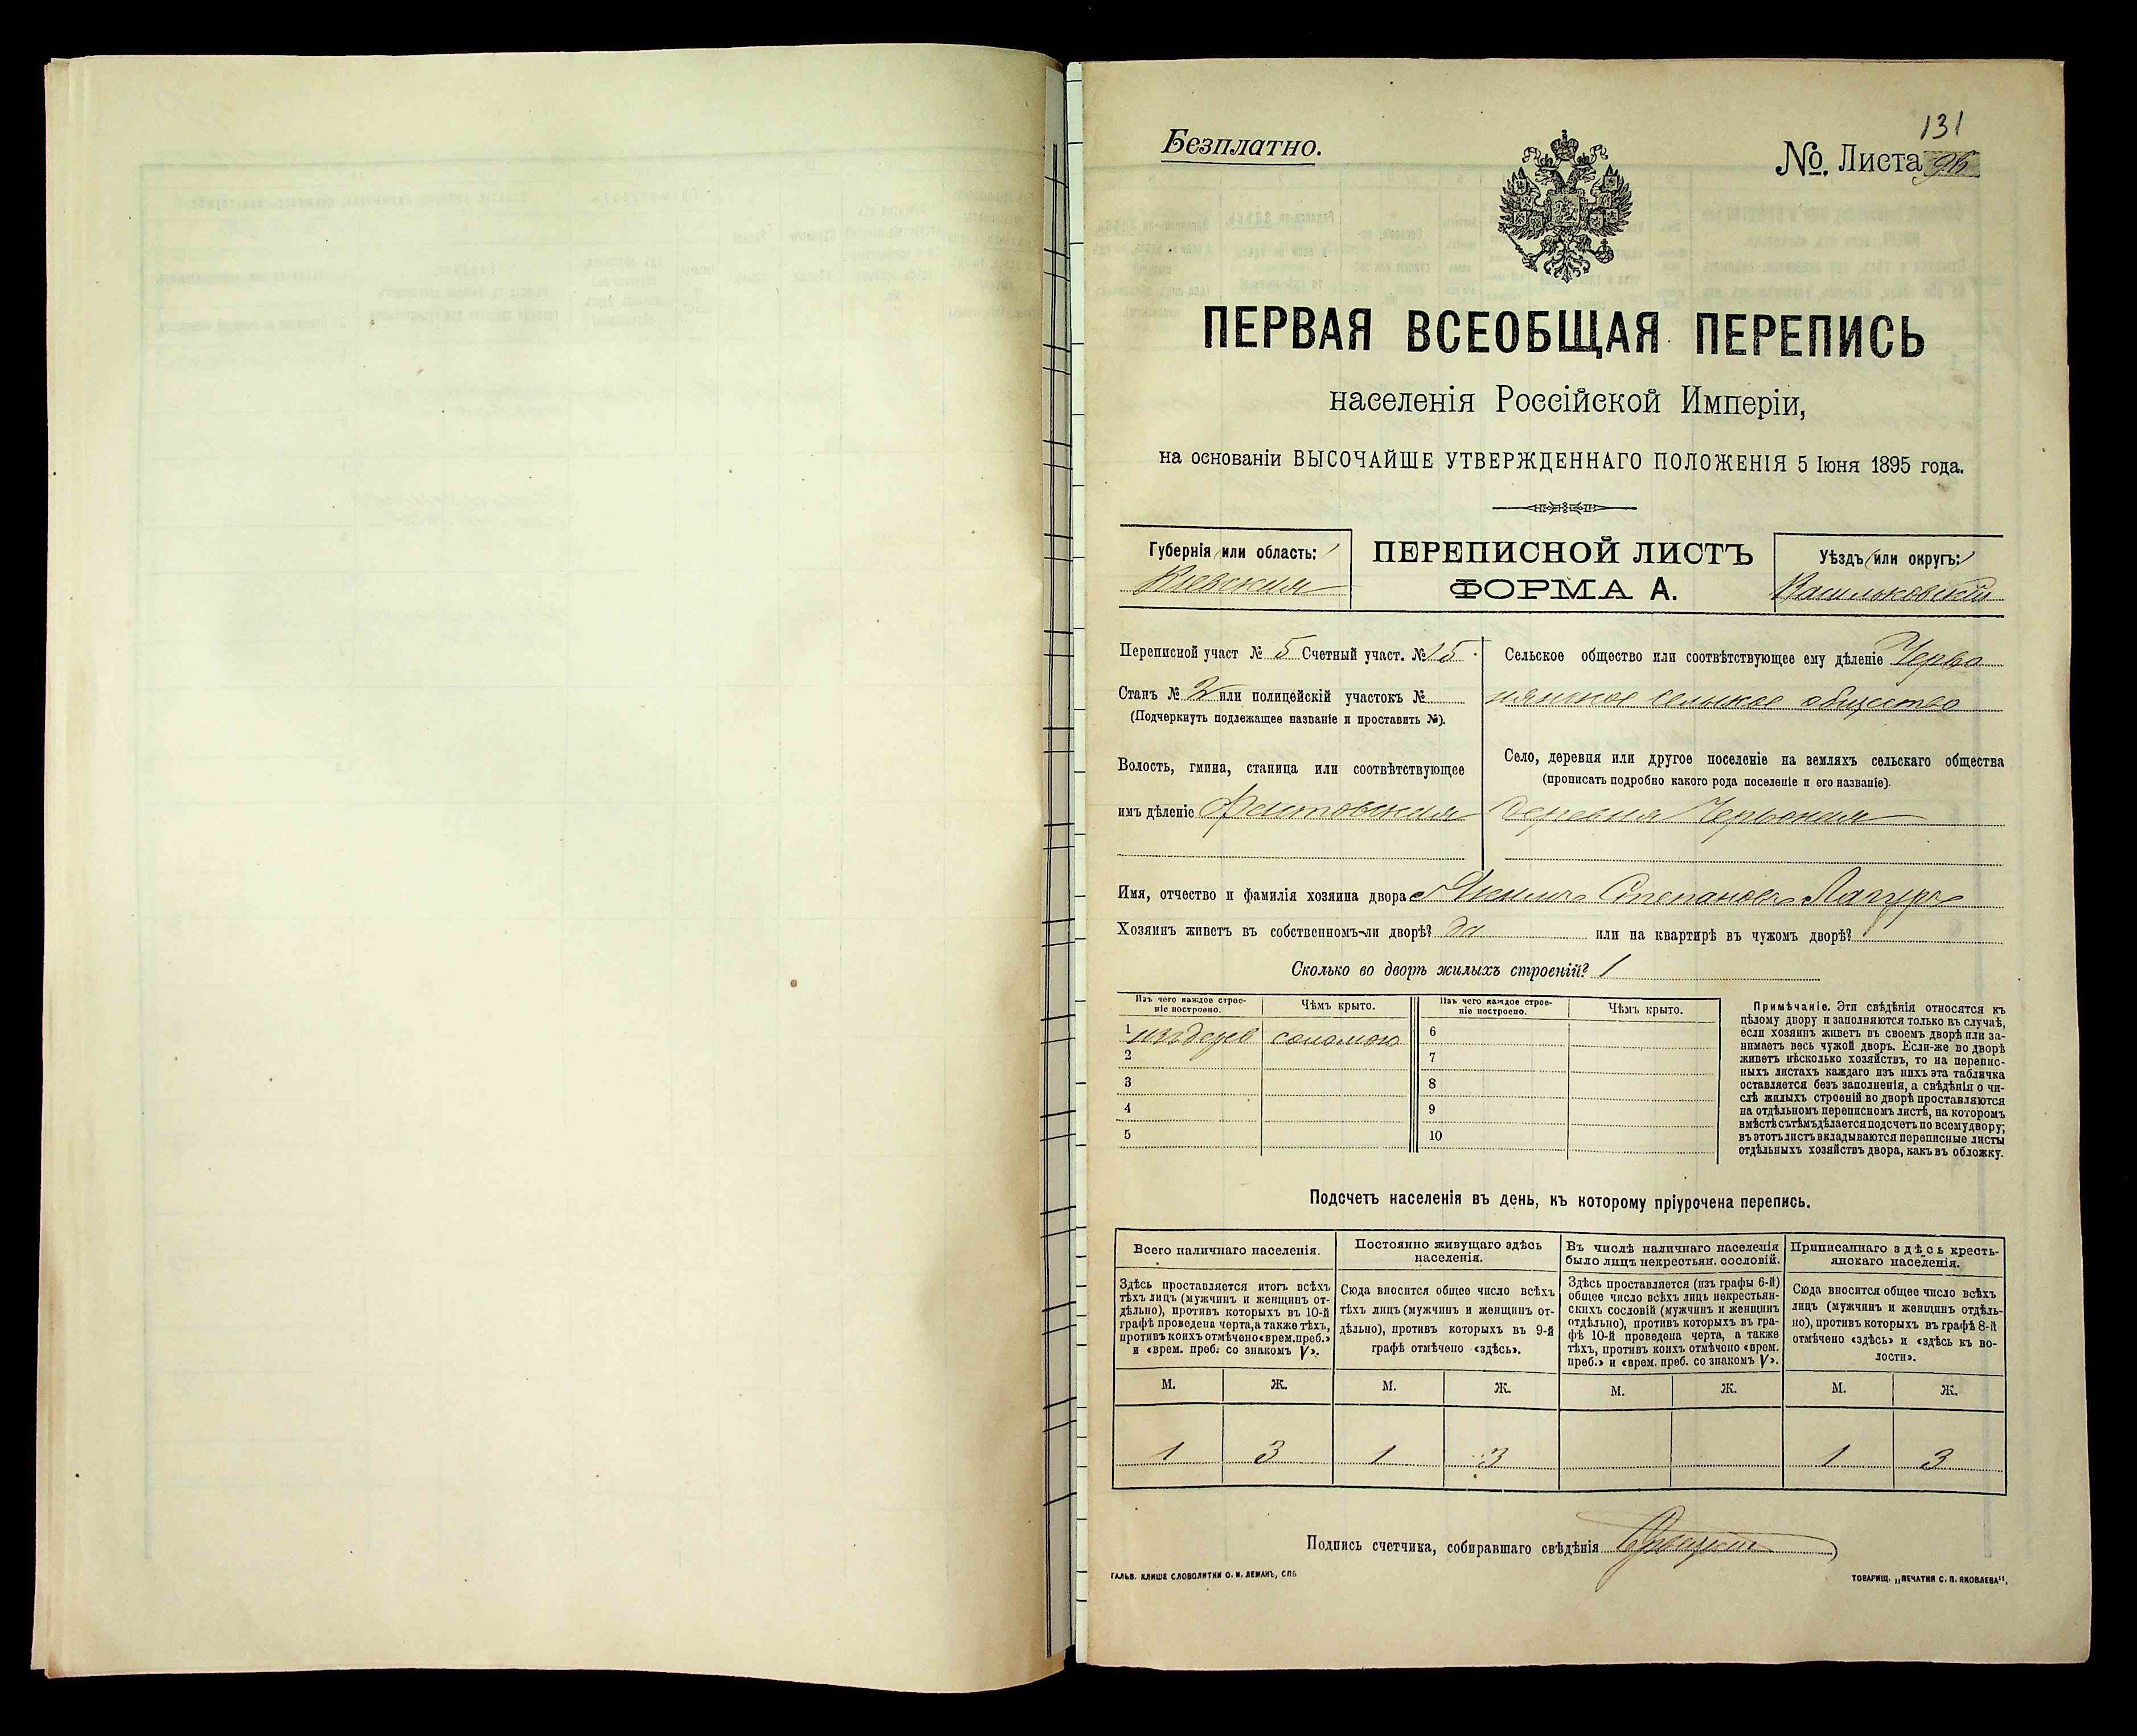 131
Безплатно.
№. Листа 96
ПЕРВАЯ ВСЕОБЩАЯ ПЕРЕПИСЬ
населенія Россійской Имперіи,
на основаніи ВЫСОЧАЙШЕ УТВЕРЖДЕННАГО ПОЛОЖЕНІЯ 5 Іюня 1895 года.
Губернія (или область:)
Кіевская
ПЕРЕПИСНОЙ ЛИСТЪ
ФОРМА А.
Уѣздъ (или округъ:)
Васильковскій
Переписной участ № 5 Счетный участ. № 15
Станъ № 2 или полицейскій участокъ №
(Подчеркнуть подлежащее названіе и проставить №).
Волость, гмина, станица или соотвѣтствующее
имъ дѣленіе Фастовская
Сельское общество или соотвѣтствующее ему дѣленіе Черво
нянское сельское общество
Село, деревня или другое поселеніе на земляхъ сельскаго общества
(прописать подробно какого рода поселеніе и его названіе).
деревня Червоная
Имя, отчество и фамилія хозяина двора Степановъ
Хозяинъ живетъ въ собственномъ-ли дворѣ? да или на квартирѣ въ чужомъ дворѣ?
Сколько во дворѣ жилыхъ строеній? 1
Изъ чего каждое строе-
ніе построено.
Чѣмъ крыто.
Изъ чего каждое строе-
ніе построено.
Чѣмъ крыто.
1 изъ дерев соломою
2
3
4
5
6
7
8
9
10
Примѣчаніе. Эти свѣдѣнія относятся къ
цѣлому двору и заполняются только въ случаѣ,
если хозяинъ живетъ въ своемъ дворѣ или за-
нимаетъ весь чужой дворъ. Если-же во дворѣ
живетъ нѣсколько хозяйствъ, то на перепис-
ныхъ листахъ каждаго изъ нихъ эта табличка
оставляется безъ заполненія, а свѣдѣнія о чи-
слѣ жилыхъ строеній во дворѣ проставляются
на отдѣльномъ переписномъ листѣ, на которомъ
вмѣстѣ съ тѣмъ дѣлается подсчетъ по всему двору;
въ этотъ листъ вкладываются переписные листы
отдѣльныхъ хозяйствъ двора, какъ въ обложку.
Подсчетъ населенія въ день, къ которому пріурочена перепись.
Всего наличнаго населенія.
Здѣсь проставляется итогъ всѣхъ
тѣхъ лицъ (мужчинъ и женщинъ от-
дѣльно), противъ которыхъ въ 10-й
графѣ проведена черта, а также тѣхъ,
противъ коихъ отмѣчено «врем. преб.»
и «врем. преб. со знакомъ V».
Постоянно живущаго здѣсь
населенія.
Сюда вносится общее число всѣхъ
тѣхъ лицъ (мужчинъ и женщинъ от-
дѣльно), противъ которыхъ въ 9-й
графѣ отмѣчено «здѣсь».
Въ числѣ наличнаго населенія
было лицъ некрестьян. сословій.
Здѣсь проставляется (изъ графы 6-й)
общее число всѣхъ лицъ некрестьян-
скихъ сословій (мужчинъ и женщинъ
отдѣльно), противъ которыхъ въ гра-
фѣ 10-й проведена черта, а также
тѣхъ, противъ коихъ отмѣчено «врем.
преб.» и «врем. преб. со знакомъ V».
Приписаннаго здѣсь кресть-
янскаго населенія.
Сюда вносится общее число всѣхъ
лицъ (мужчинъ и женщинъ отдѣль-
но), противъ которыхъ въ графѣ 8-й
отмѣчено «здѣсь» и «здѣсь къ во-
лости».
М. Ж. М. Ж. М. Ж. М. Ж.
1 3 1 3 1 3
Подпись счетчика, собиравшаго свѣдѣнія
ГАЛЬВ. КЛИШЕ СЛОВОЛИТНИ О. И. ЛЕМАНЪ, СПБ
ТОВАРИЩ. „ПЕЧАТНЯ С. П. ЯКОВЛЕВА“.